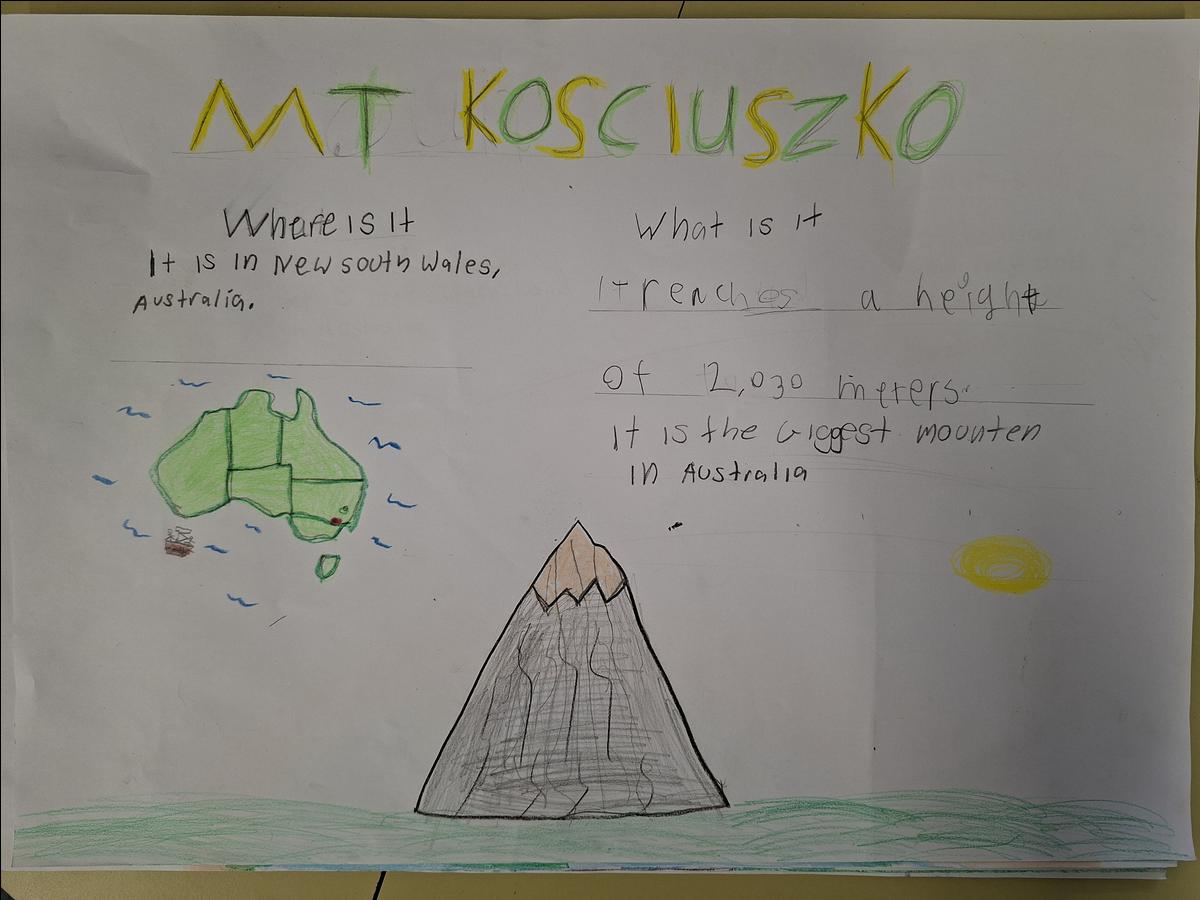 MT KOSCIUSZKO
Where is it
It is in New south Wales,
Australia.
What is it
It reaches a height
of 2,030 meters.
it is the biggest mounten
in Australia